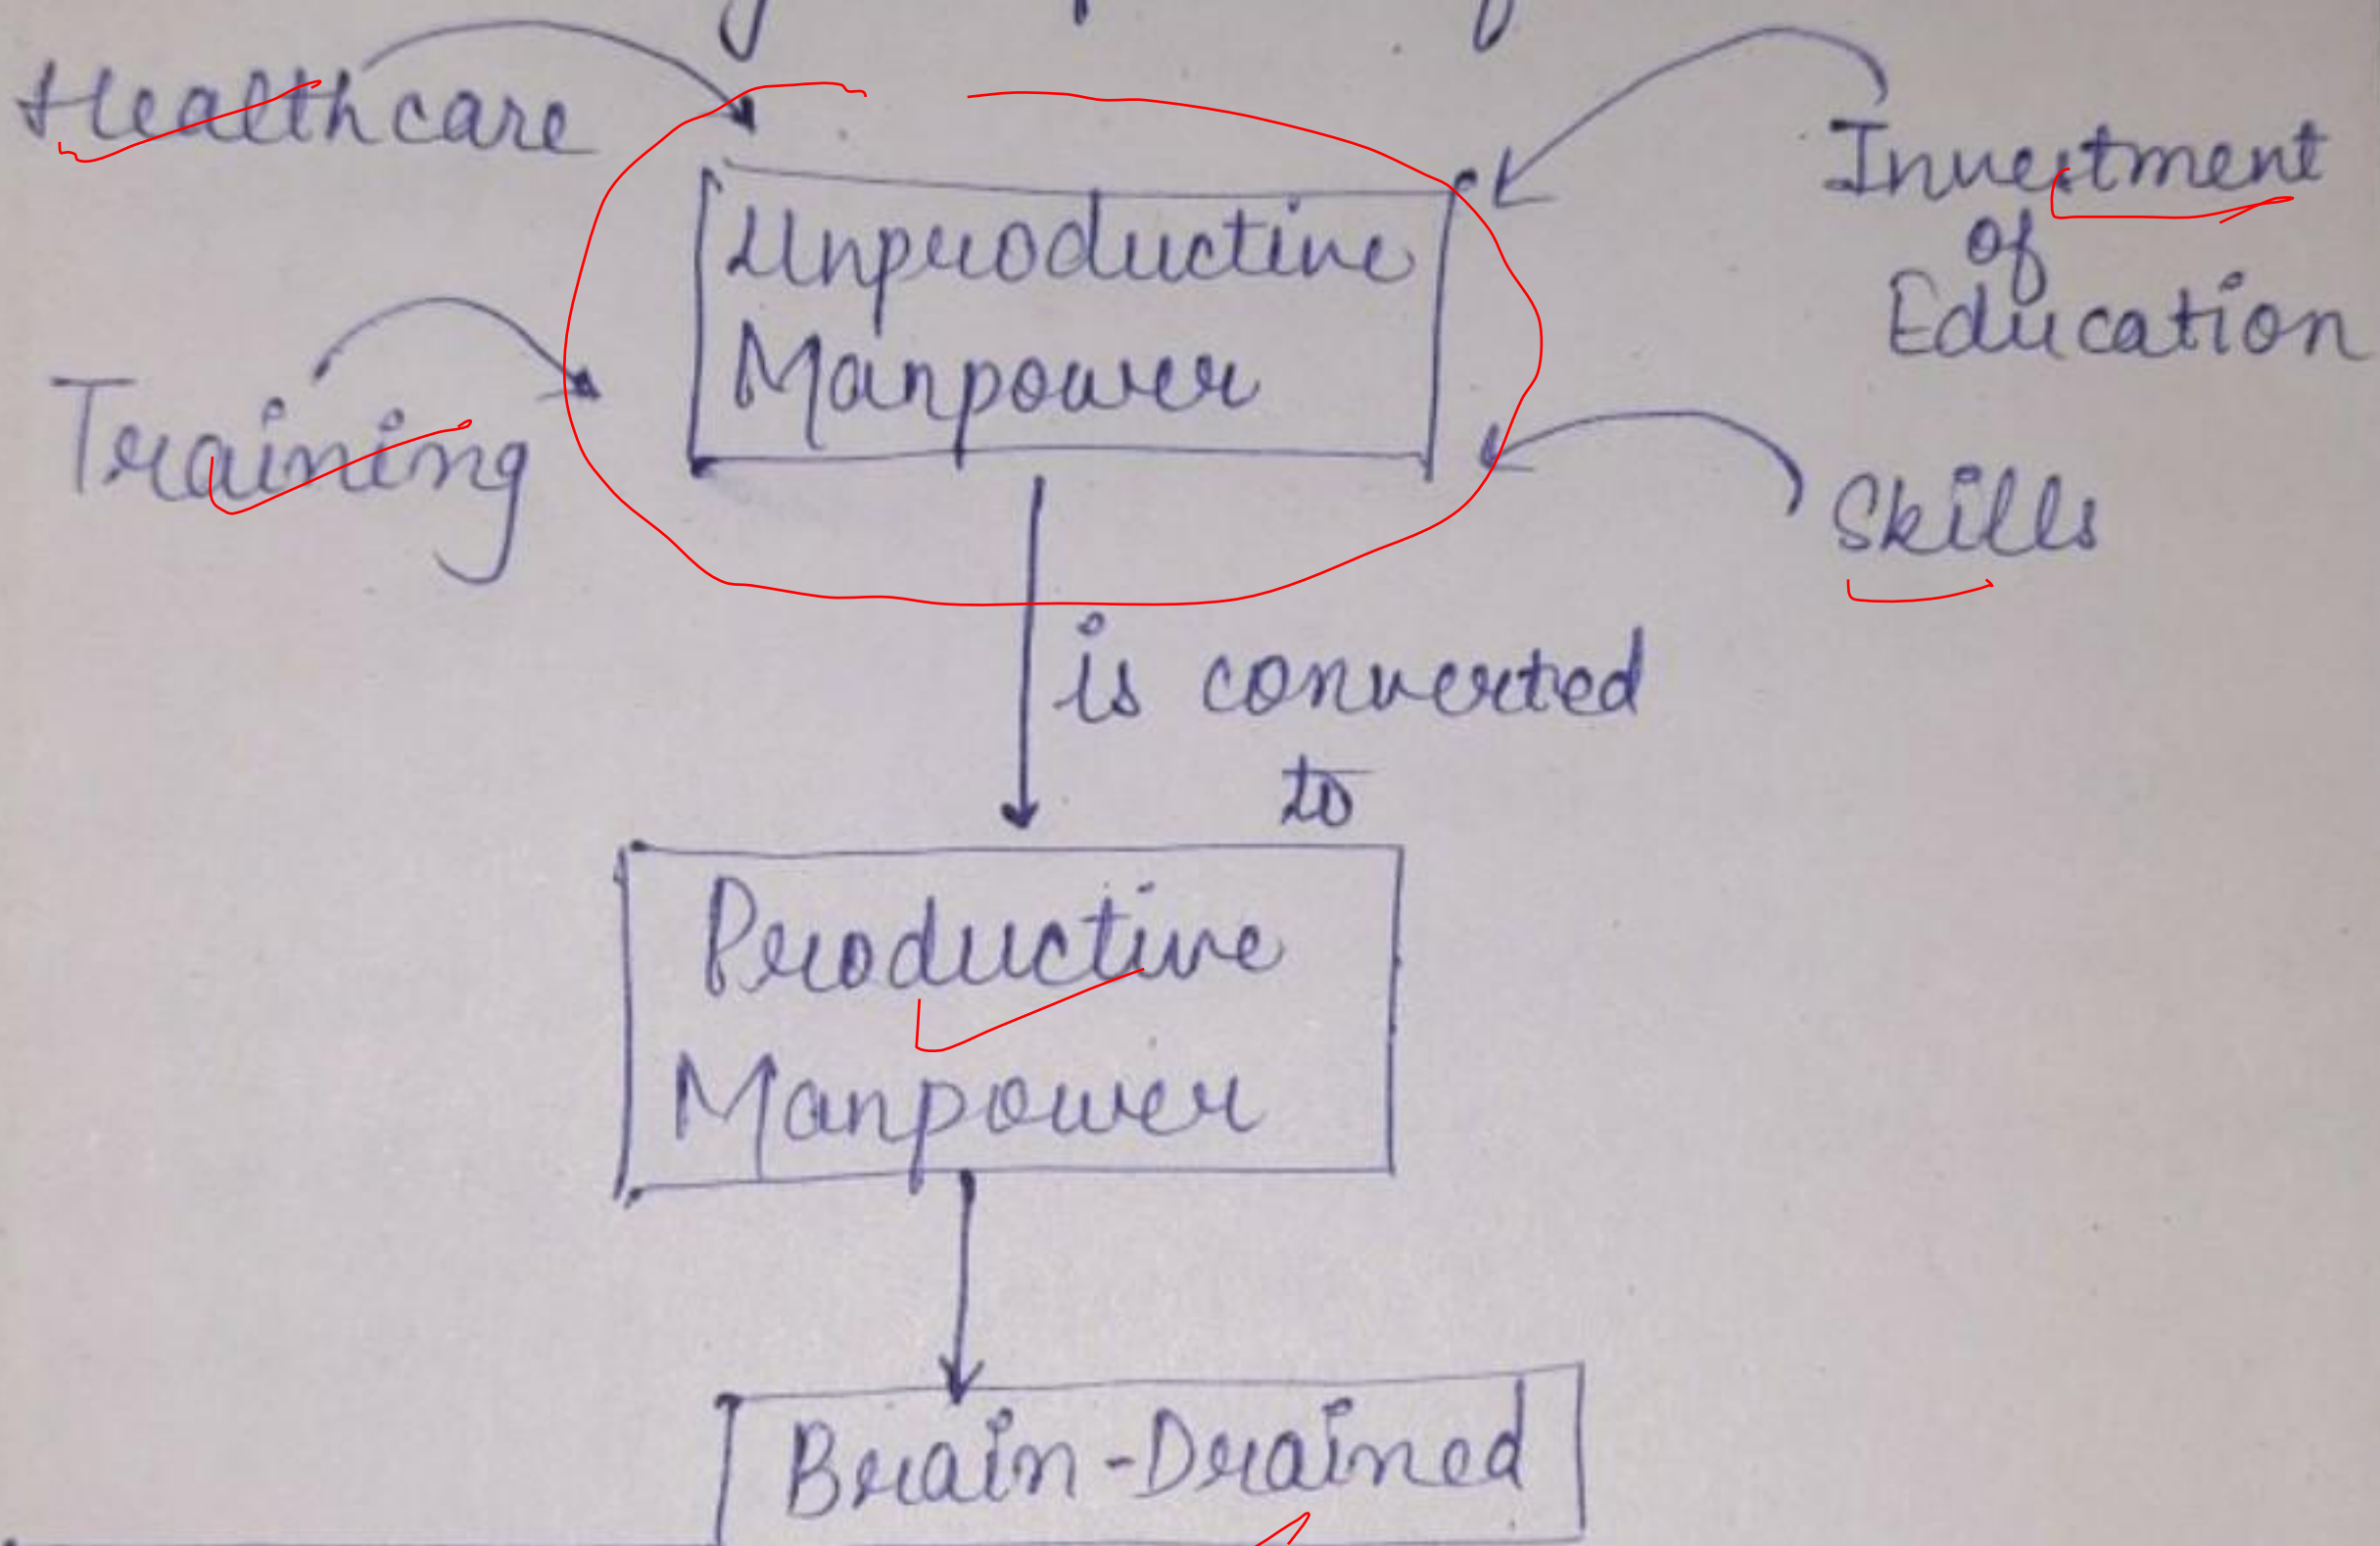 Healthcare
Investment
of
Education
Unproductive
Manpower
Training
Skills
is converted
to
Productive
Manpower
Brain-Drained